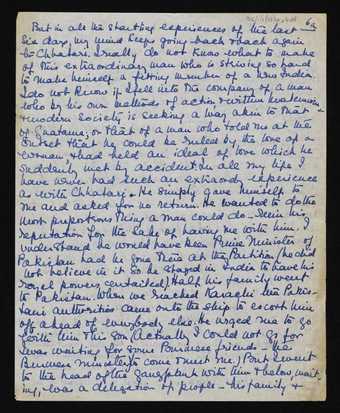 6a
But in all the startling experiences of the last
six days, my mind keeps going back & back again
to Chhatari. I really do not know what to make
of this extraordinary man who is striving so hard
to make himself a fitting member of a new India.
I do not know if I fell into the company of a man
who by his own methods of action & within
modern society is seeking a way akin to that
of Gautama, or that of a man who told me at the
outset that he could be ruled by the love of a
woman, & had held an ideal of love which he
suddenly met by accident. In all my life I
have never had such an extraordy experience
as with Chhatari. He simply gave himself to
me and asked for no return. He wanted to do the
most preposterous thing a man could do - ruin his
reputation for the sake of having me with him. I
understand he would have been Prime Minister of
Pakistan had he gone there at the Partition (he did
not believe in it so he stayed in India to have his
royal powers curtailed) Half his family went
to Pakistan. When we reached Karachi the Pakis-
tani authorities came onto the ship to escort him
off ahead of everybody else. He urged me to go
with him & his son (Actually I could not go for
I was waiting for some Burmese friends - the
Burmese minister to come & meet me.) But I went
to the head of the gangplank with him & below wait-
ing, was a delegation of people - his family &